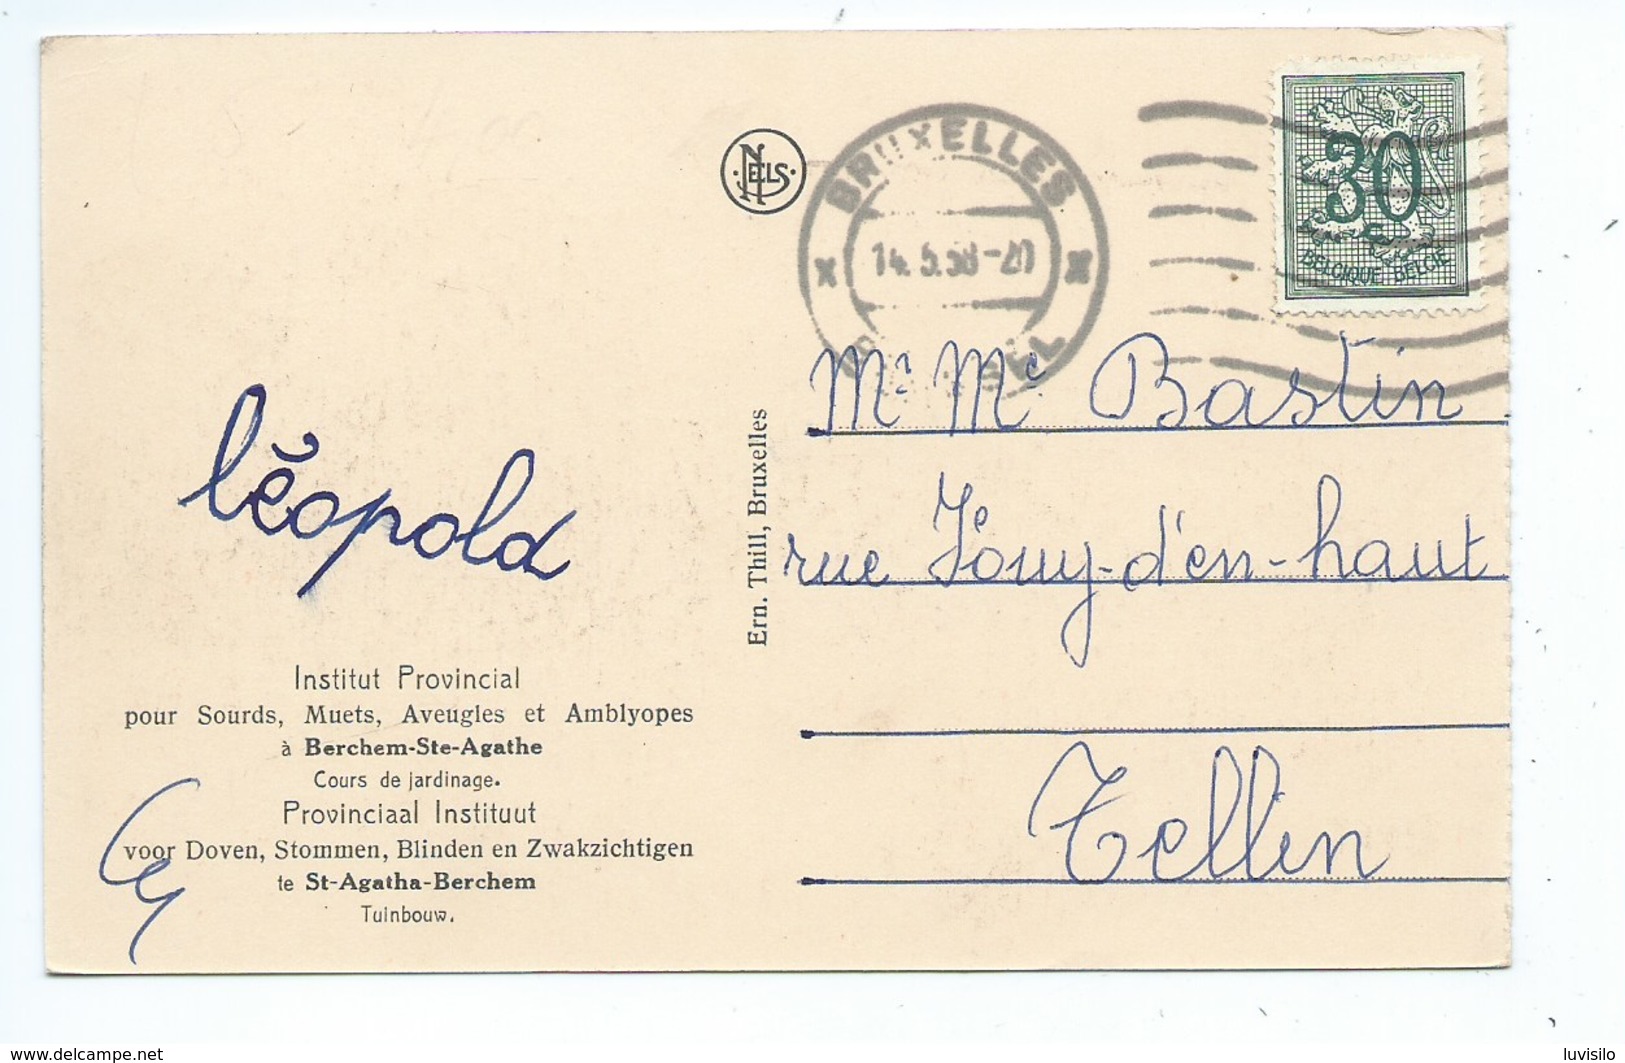 NELS
BRUXELLES
14.5.58-20
30
c
BELGIQUE BELGIË
Mr Me Bastin
rue Jouy-d'en-haut
Tellin
léopold
Ern. Thill, Bruxelles
Institut Provincial
pour Sourds, Muets, Aveugles et Amblyopes
à Berchem-Ste-Agathe
Cours de jardinage.
Provinciaal Instituut
voor Doven, Stommen, Blinden en Zwakzichtigen
te St-Agatha-Berchem
Tuinbouw.
www.delcampe.net
luvisilo